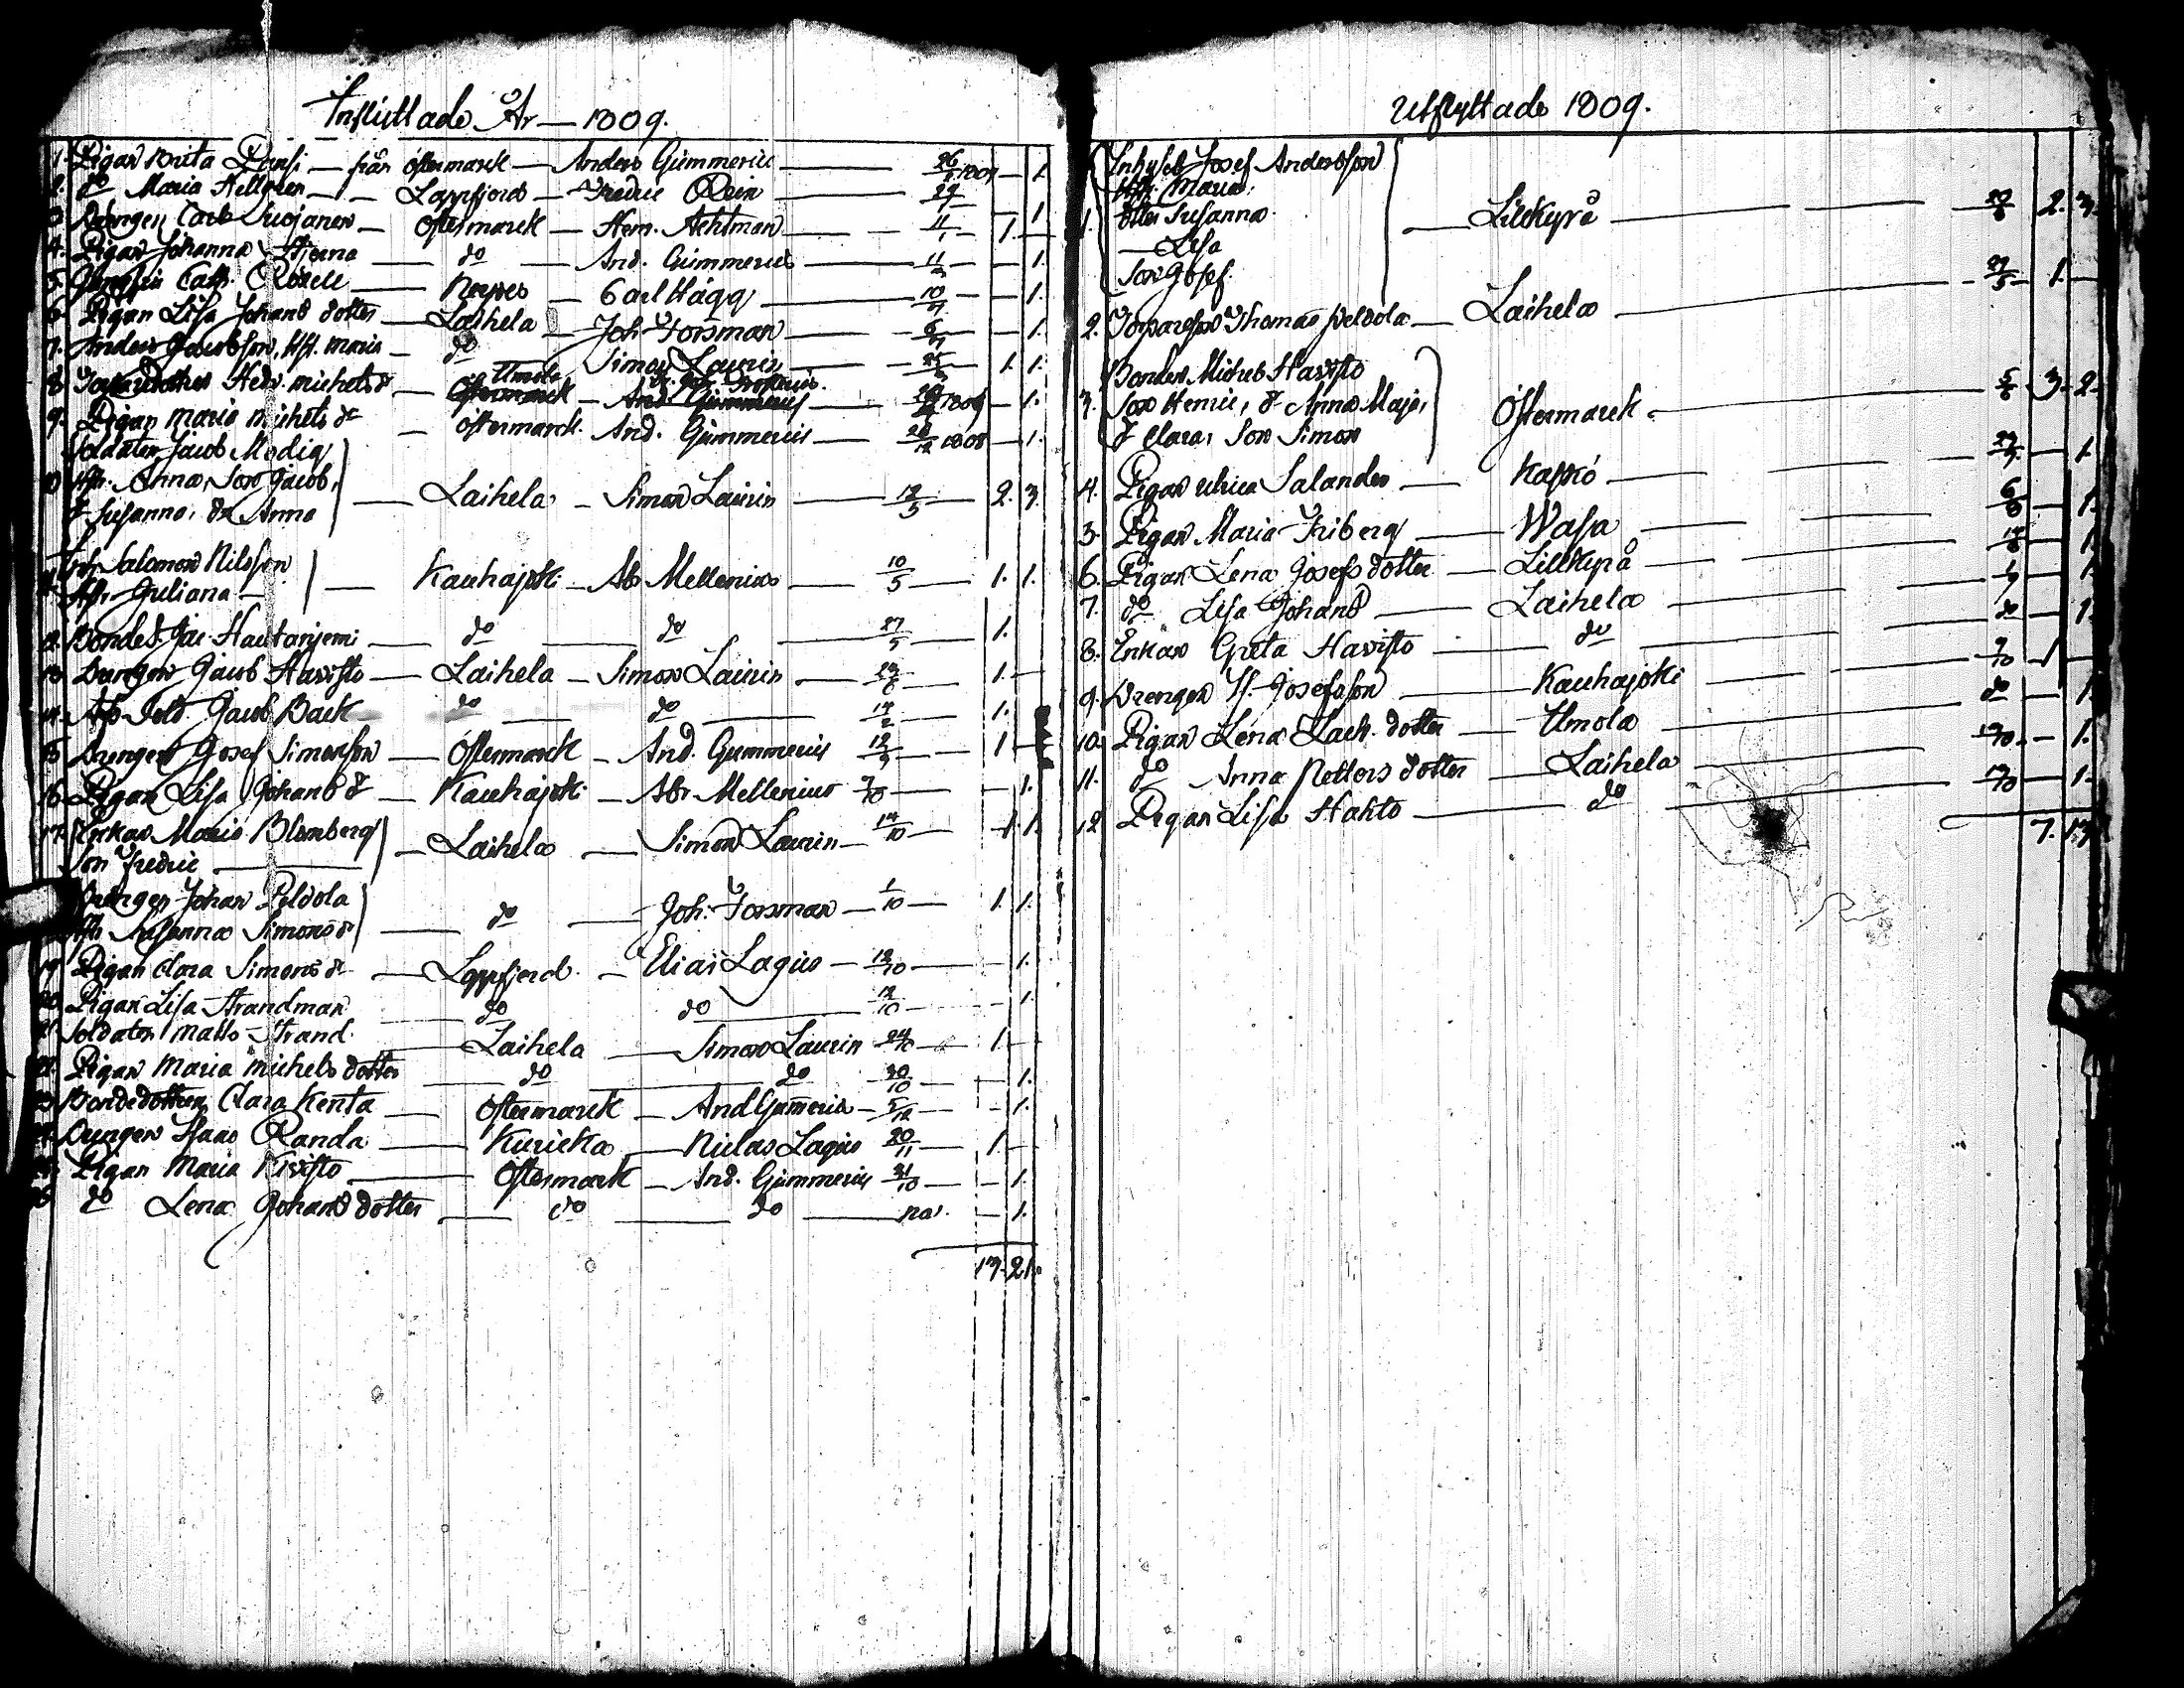 Inflyttade År — 1809.
1. Pigan Brita — från Östermark — Anders Gummerus — 26/ 1809 — 1.
2. do Maria Hellgren — Lappfjerd — Fredric Rein — — 1
3 Drengen Carl — Östermark — Hem. Achtman — 11/1 — 1.
4. Pigan Johanna Stjerna — do — And. Gummerus — 11/ — 1.
5. Cath. — Nerpes — Carl Hägg — 10/ — 1.
6. Pigan Lisa Johans dotter — Laihela — Joh. Forsman — 6/ — 1.
7. Anders Jacobsson, Hst. Maria — do — Simon Laurin — 25/ — 1. 1.
Ilmola
8 Hedv. Michels dr — Östermark — And Gummerus — 1809 — 1.
9. Pigan Maria Michels dr — Östermarck. And. Gummerus — 28/12 1808 — 1.
Soldaten Jacob Modig
10 Hst. Anna, Son Jacob,
dr Susanna, dr Anna — Laihela — Simon Laurin — 12/5 — 2. 3.
Salomon Nilsson
11. Hst. Juliana — Kauhajoki — Ab Mellenius — 10/5 — 1. 1.
12. Bondes. Jac. Hautaniemi — do — do — 27/5 — 1.
13 Drengen Jacob Havisto — Laihela — Simon Laurin — 1.
14. Afs. Sold. Jacob Back — do — do — 1.
15 Drengen Josef Simonsson — Östermark — And. Gummerus — 12/ — 1
16 Pigan Lisa Johans dr — Kauhajoki — Abr Mellenius 7/10 — 1.
17. Enkan Maria Blomberg
Son Fredric — Laihela — Simon Laurin — 14/10 — 1. 1.
Drengen Johan Peldola
Hst. Susanna Simons dr — do — Joh. Forsman — 1/10 — 1. 1.
19 Pigan Clara Simons dr — Lappfjerd. — Elias Lagus — 12/10 — 1.
20. Pigan Lisa Strandman do do 12/10 — 1.
21. Soldaten Matts Strand Laihela — Simon Laurin 24/10 — 1.
22. Pigan Maria Michels dotter — do — do 30/10 — 1.
23 Bondedottren Clara Kentta — Östermarck — And Gummerus — 5/12 — 1.
24. Drengen Isaac Randa — Kuricka — Niclas Lagus 20/11 — 1.
25. Pigan Maria Kivisto — Östermark — And. Gummerus 31/10 — 1.
26 do Lena Johans dotter — do — do — 1.
13. 21.
Utflyttade 1809.
Inhyses Josef Andersson
Hst. Maria,
1. dotter Susanna — Lillkyro — 2. 3.
— Lisa
Son Josef.
2. Torpareson Thomas Peldola — Laihela — 27/5 — 1.
Bonden Michel Havisto
3. Son Henric, dr Anna Maja, Östermark — 3. 2.
dr Clara, Son Simon
4. Pigan Ulrica Salander — Kaskö — 1.
5. Pigan Maria Friberg — Wasa — 1.
6. Pigan Lena Josefs dotter — Lillkyrå — 1.
7. do Lisa Johans — Laihela — 1.
8. Enkan Greta Havisto — do — do — 1.
9. Drengen Is. Josefsson — Kauhajoki — 7/10 — 1
10. Pigan Lena Zach. dotter — Ilmola — do — 1.
11. do Anna Petters dotter — Laihela — 1.
12 Pigan Lisa Hahto — do — 1.
7. 13.